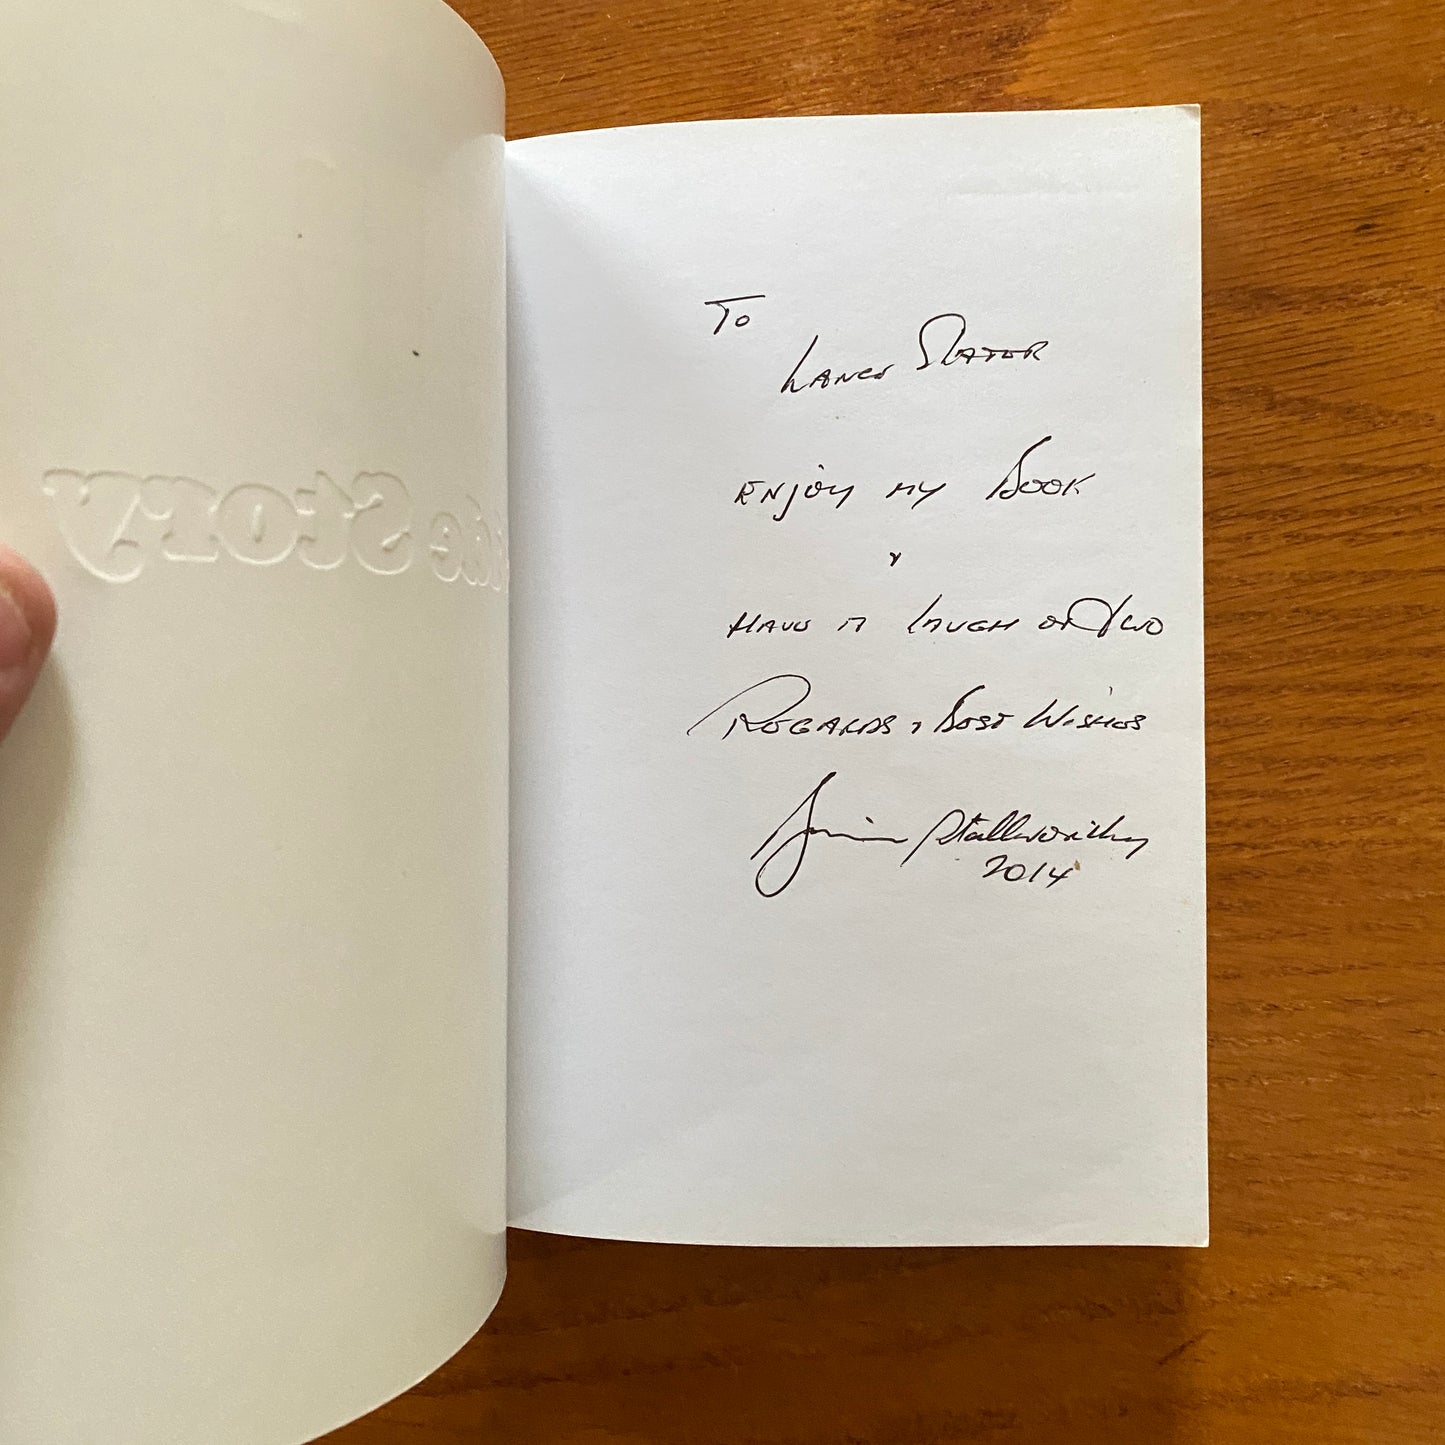 Story
To
Lance Slater
Enjoy my Book
&
Have a laugh or two
Regards & Best Wishes
Stallworthy
2014